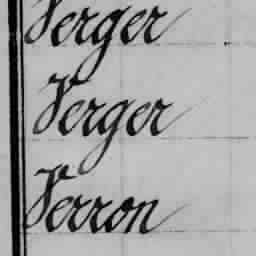 Verger
Verger
Verron